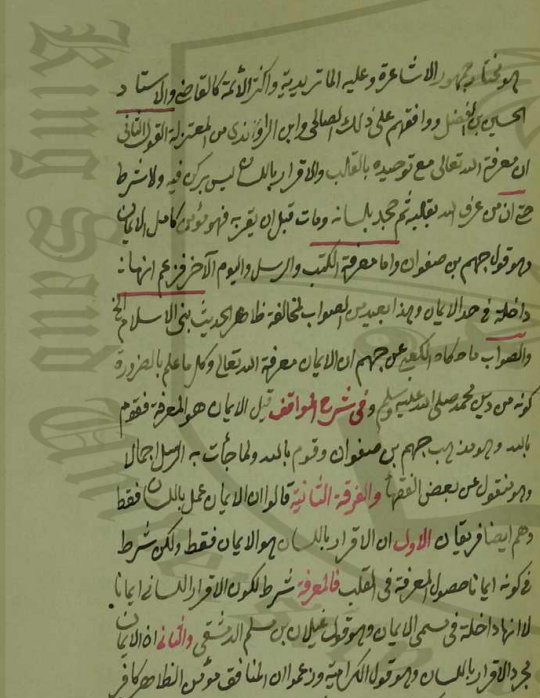 هو مختار جمهور الاشاعرة وعليه الماتريدية واكثر الائمة كالقاضي والاستاد
الحسين بن الفضل ووافقهم على ذلك الصالحي وابن الراوندي من المعتزلة القول الثاني
ان معرفة الله تعالى مع توحيده بالقالب والاقرار باللسان ليس بركن فيه ولا شرط
حتى ان من عرف الله بقلبه ثم جحد بلسانه ومات قبل ان يقر به فهو مؤمن كامل الايمان
وهو قول جهم بن صفوان واما معرفة الكتب والرسل واليوم الآخر فزعم انها
داخلة في حد الايمان وهذا بعيد من الصواب لمخالفة ظاهر الحديث بني الاسلام الخ
والصواب ما حكاه الكعبي عن جهم ان الايمان معرفة الله تعالى وكل ما علم بالضرورة
كونه من دين محمد صلى الله عليه وسلم وفي شرح المواقف قيل الايمان هو المعرفة فقوم
بالله وهو مذهب جهم بن صفوان وقوم بالله ولما جأت به الرسل اجمالا
وهو منقول عن بعض الفقهأ والفرقة الثانية قالوا ان الايمان عمل باللسان فقط
وهم ايضا فريقان الاول ان الاقرار باللسان هو الايمان فقط ولكن شرط
في كونه ايمانا حصول المعرفة في القلب فالمعرفة شرط لكون الاقرار اللساني ايمانا
لا انها داخلة في مسمى الايمان وهو قول غيلان بن مسلم الدمشقي والثاني ان الايمان
مجرد الاقرار باللسان وهو قول الكرامية وزعموا ان المنافق مؤمن الظاهر كافر
King Saud Un